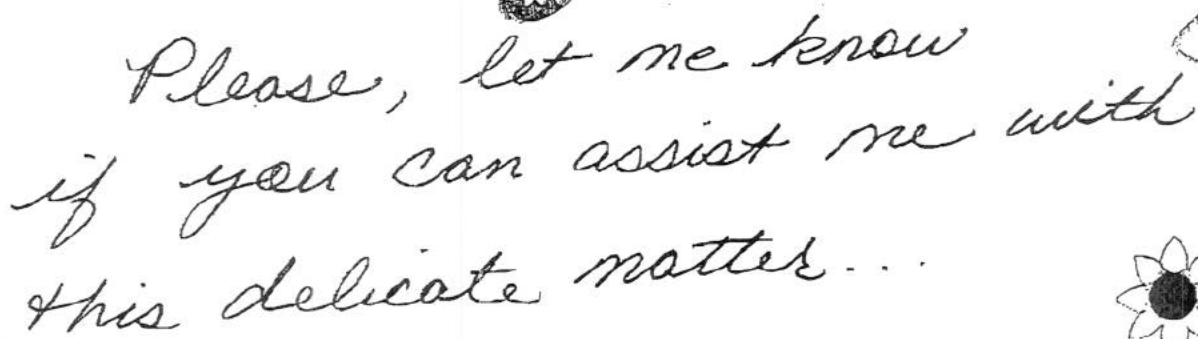 Please, let me know
if you can assist me with
this delicate matter...